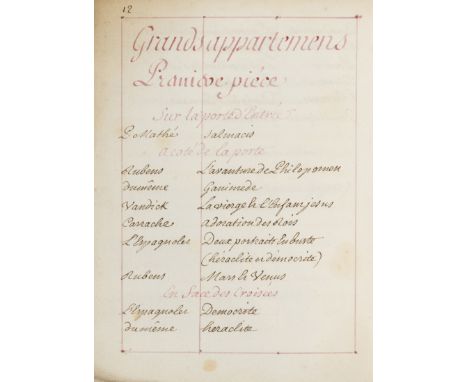 12
Grands appartemens
Premiere piéce
Sur la porte d'Entrée
P. Mathé Salmacis
a coté de la porte
Rubens L'avanture de Philopomen
du même Ganimede
Vandick La vierge & l'Enfant jesus
Carrache adoration des Rois
L'Espagnolet Deux portraits en buste
(heraclite et démocrite)
Rubens Mars & Venus
En face des Croisées
l'Espagnolet Democrite
du même heraclite